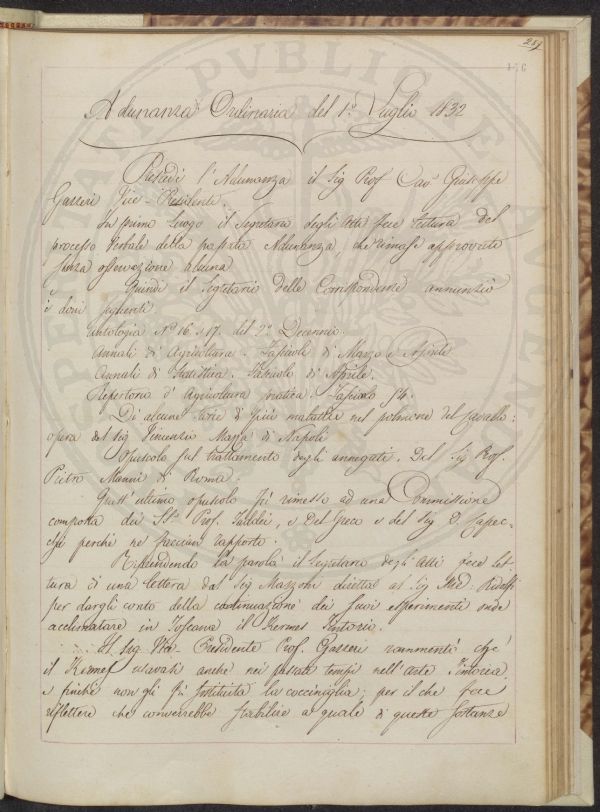 289
146
Adunanza Ordinaria del 1º. Luglio 1832
Presiede l'Adunanza il Sig Prof Cavr Giuseppe
Gazzeri Vice-Presidente.
In primo luogo il Segretario degli Atti fece lettura del
processo verbale della passata Adunanza, che rimase approvato
senza osservazione alcuna
Quindi il Segretario delle Corrispondenze annunziò
i doni seguenti
Antologia Nº 16. e 17. del 2º Decennio.
Annali di Agricoltura. Fascicoli di Marzo e Aprile
Annali di Statistica. Fascicoli di Aprile.
Repertorio d'Agricoltura pratica. Fascicolo 54.
Di alcune storie di più malattie nel polmone del cavallo:
opera del Sig Vincenzio Mazza di Napoli
Opuscolo sul trattamento degli annegati. Del Sig Prof.
Pietro Manni di Roma.
Quest'ultimo opuscolo fù rimesso ad una Commissione
composta dei SSri Prof. Taddei, e Del Greco e del Sig D. Capec-
chi perchè ne facciano rapporto.
Riprendendo la parola il Segretario degli Atti fece let-
tura di una lettera del Sig Mazzoni diretta al Sig Mse: Ridolfi
per dargli conto della continuazione dei suoi esperimenti onde
acclimatare in Toscana il Kermes Tintorio.
Il Sig Vice-Presidente Prof. Gazzeri rammentò che
il Kermes usavasi anche nei passati tempi nell'arte Tintoria
e finchè non gli fù sostituita la cocciniglia; per il che fece
riflettere che converrebbe stabilire a quale di queste sostanze